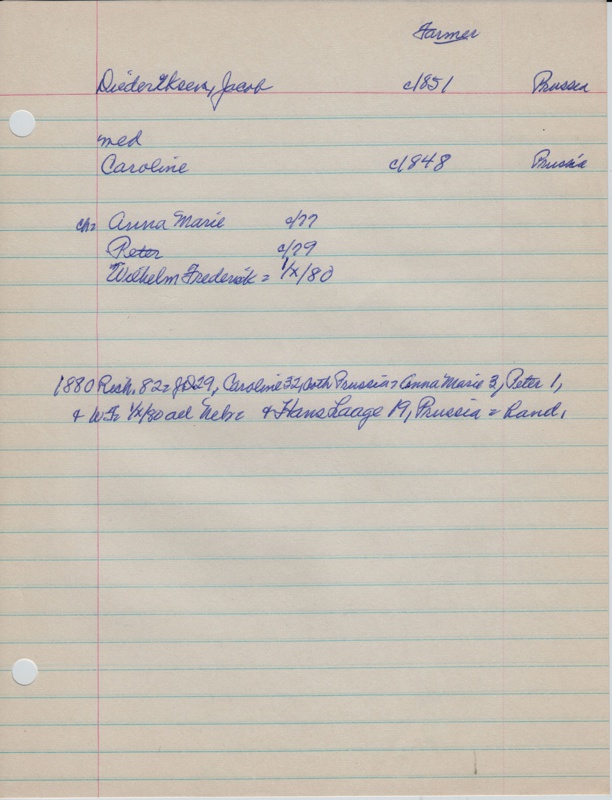 Farmer
Diederiksen, Jacob c1851 Prussia
med
Caroline c1848 Prussia
ch= Anna Marie c/77
Peter c/79
Wilhelm Frederick = 1/x/80
1880 Rich. 82= JD 29, Caroline 32, both Prussia= Anna Marie 3, Peter 1,
& WF= 1/x/80 all Neb= & Hans Laage 19, Prussia = hand.